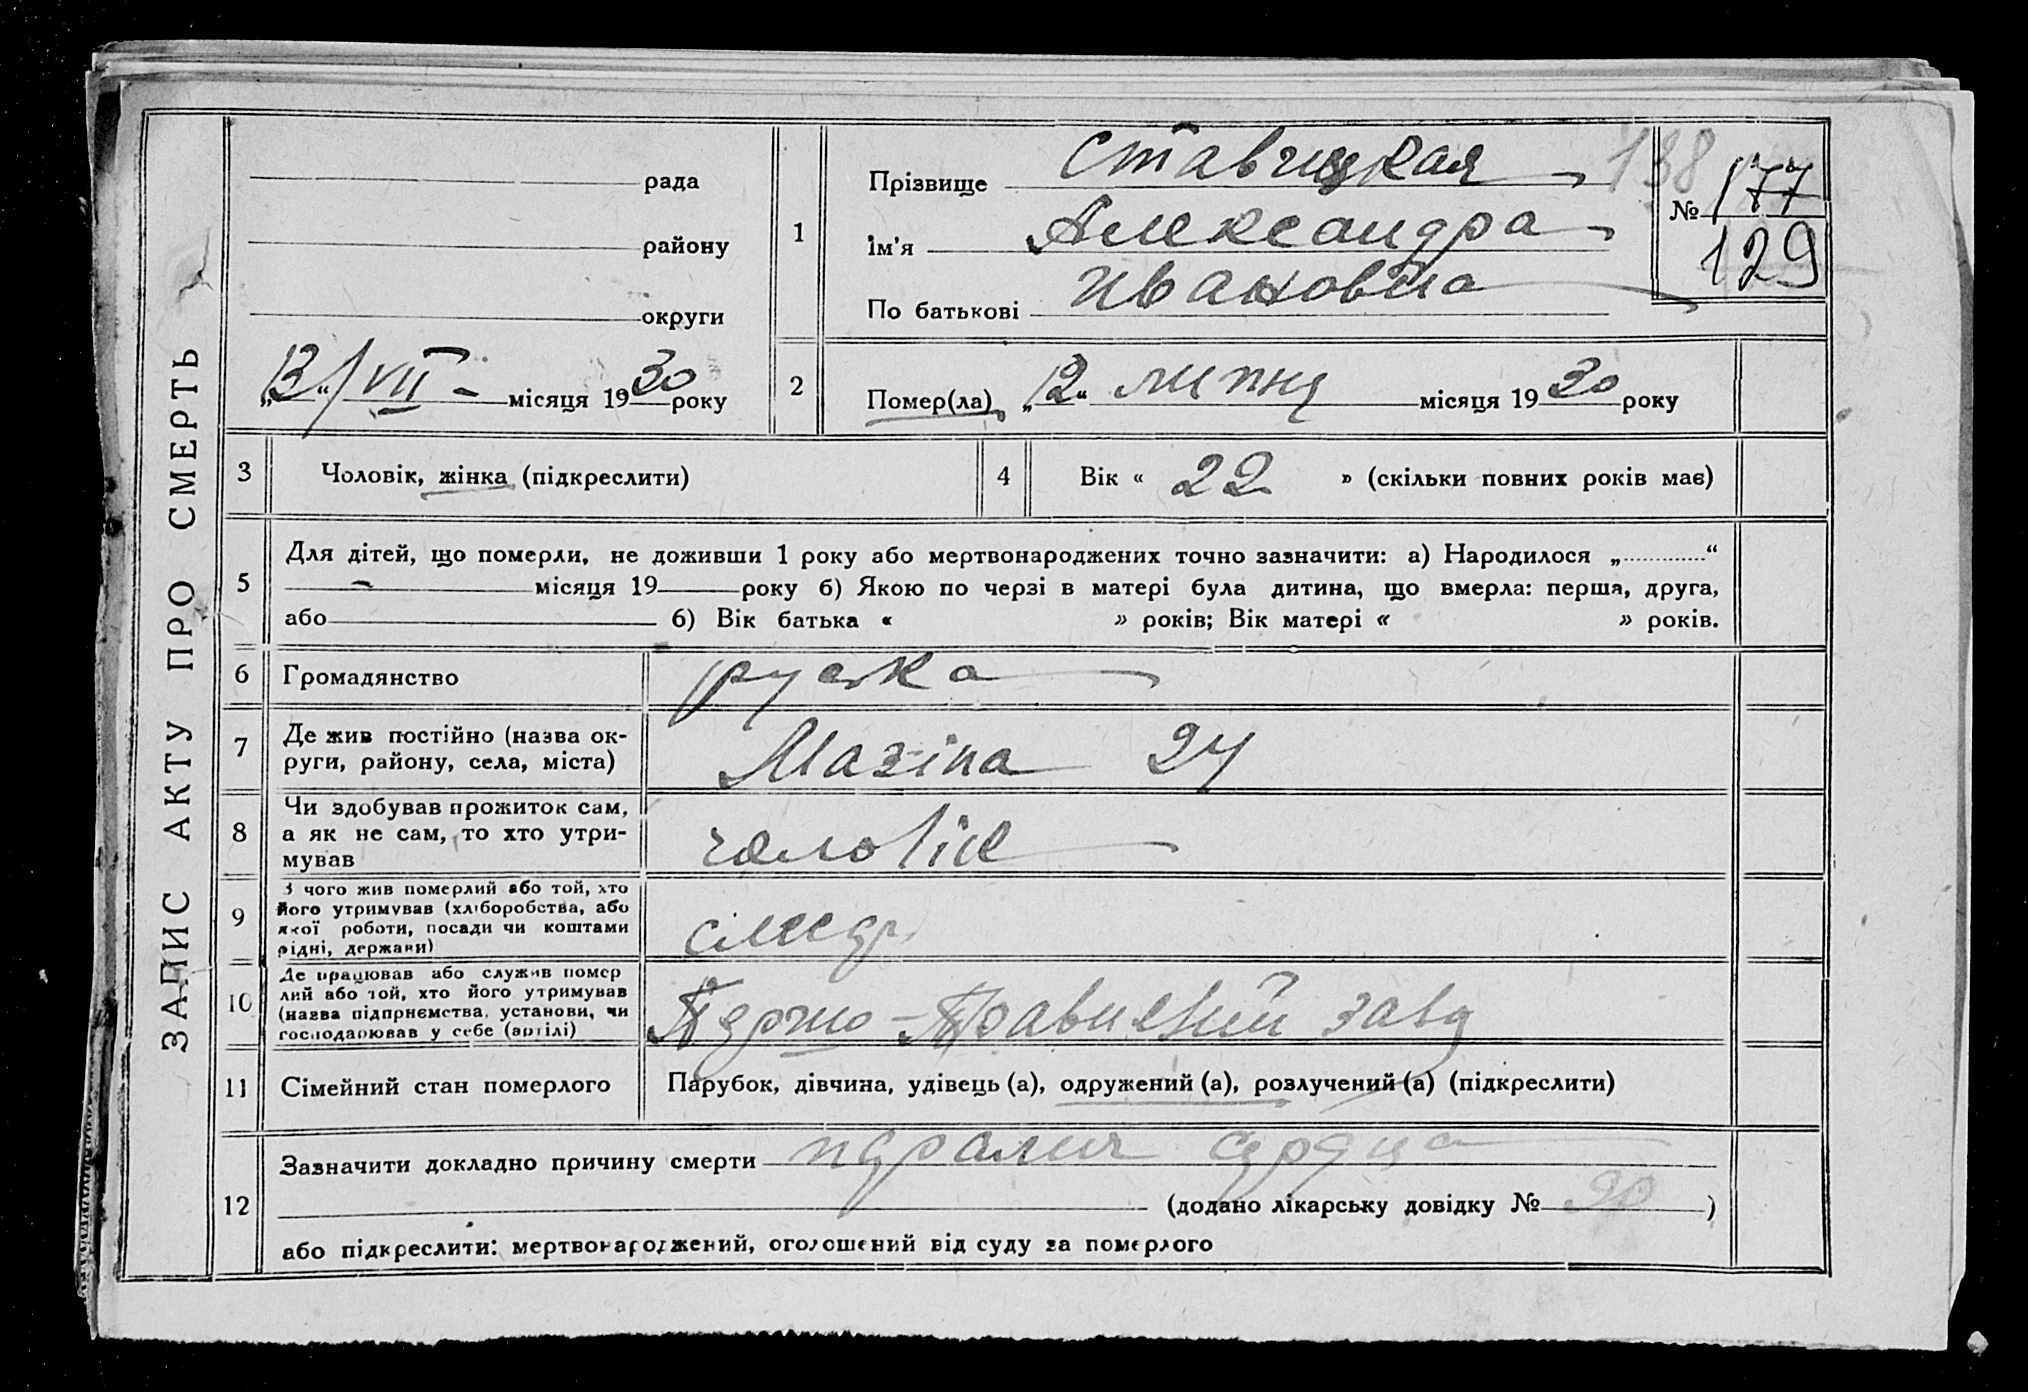 ЗАПИС АКТУ ПРО СМЕРТЬ
рада
району
округи
„13“ VII місяця 1930 року
1
Прізвище Ставицкая
Ім'я Александра
По батькові Ивановна
138
№ 177
129
2
Помер(ла) „12“ липня місяця 1930 року
3 Чоловік, жінка (підкреслити)
4 Вік « 22 » (скільки повних років має)
5
Для дітей, що померли, не доживши 1 року або мертвонароджених точно зазначити: а) Народилося „ “
місяця 19 року б) Якою по черзі в матері була дитина, що вмерла: перша, друга,
або б) Вік батька « » років; Вік матері « » років.
6 Громадянство руска
7 Де жив постійно (назва ок-
руги, району, села, міста)
Мазіпа 24
8 Чи здобував прожиток сам,
а як не сам, то хто утри-
мував
чоловік
9 З чого жив померлий або той, хто
його утримував (хліборобства, або
якої роботи, посади чи коштами
рідні, держави)
10 Де працював або служив помер
лий або той, хто його утримував
(назва підпрнємства, установи, чи
господарював у себе (артілі)
завд
11 Сімейний стан померлого
Парубок, дівчина, удівець (а), одружений (а), розлучений (а) (підкреслити)
12
Зазначити докладно причину смерти параліч сердца
(додано лікарську довідку № )
або підкреслити: мертвонароджений, оголошений від суду за померлого